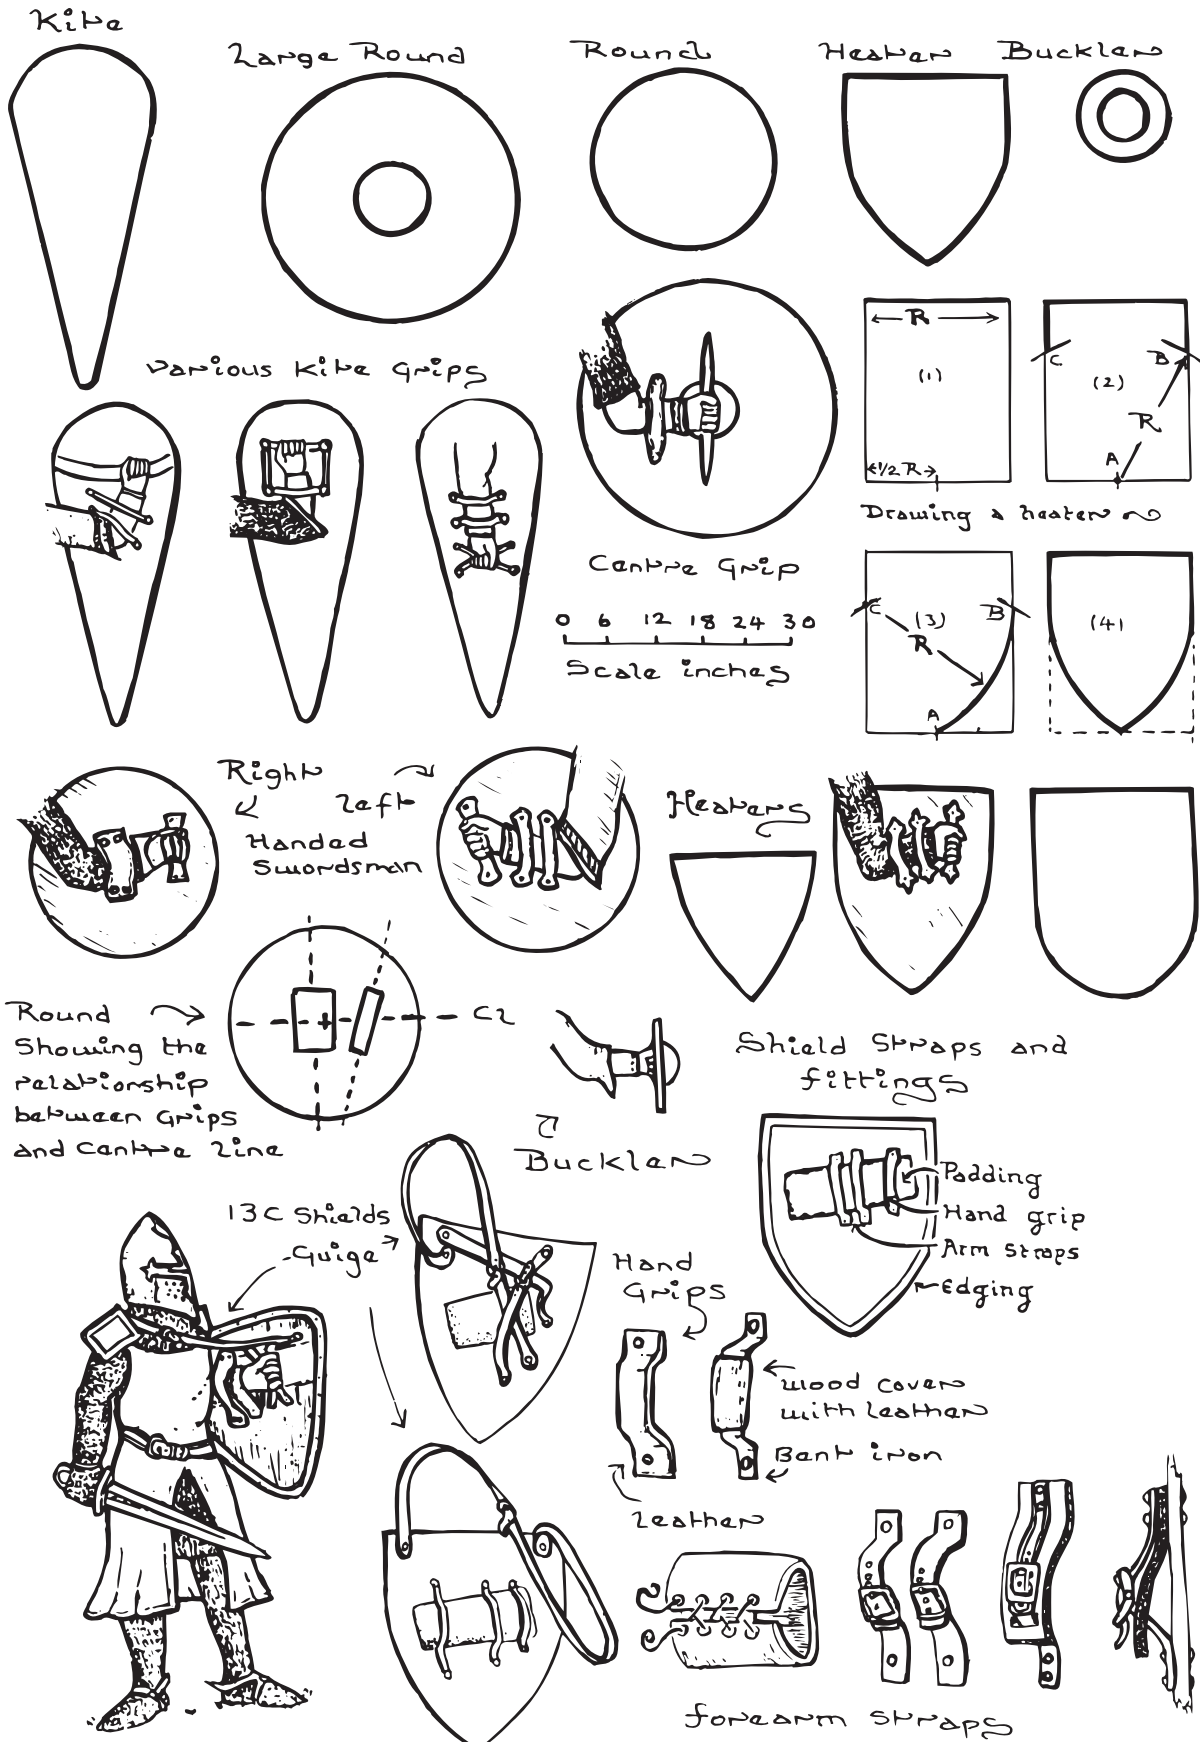 Kite
Large Round
Round
Heater
Buckler
R
(1)
1/2 R
C
B
(2)
R
A
Various Kite Grips
Drawing a heater
Centre Grip
0 6 12 18 24 30
Scale inches
C
B
(3)
R
A
(4)
Right
left
Handed
Swordsman
Heaters
Round
Showing the
relationship
between Grips
and Centre Line
CL
Buckler
Shield Straps and
fittings
Padding
Hand grip
Arm Straps
Edging
13C Shields
Guige
Hand
Grips
Wood cover
with leather
Bent iron
leather
forearm straps